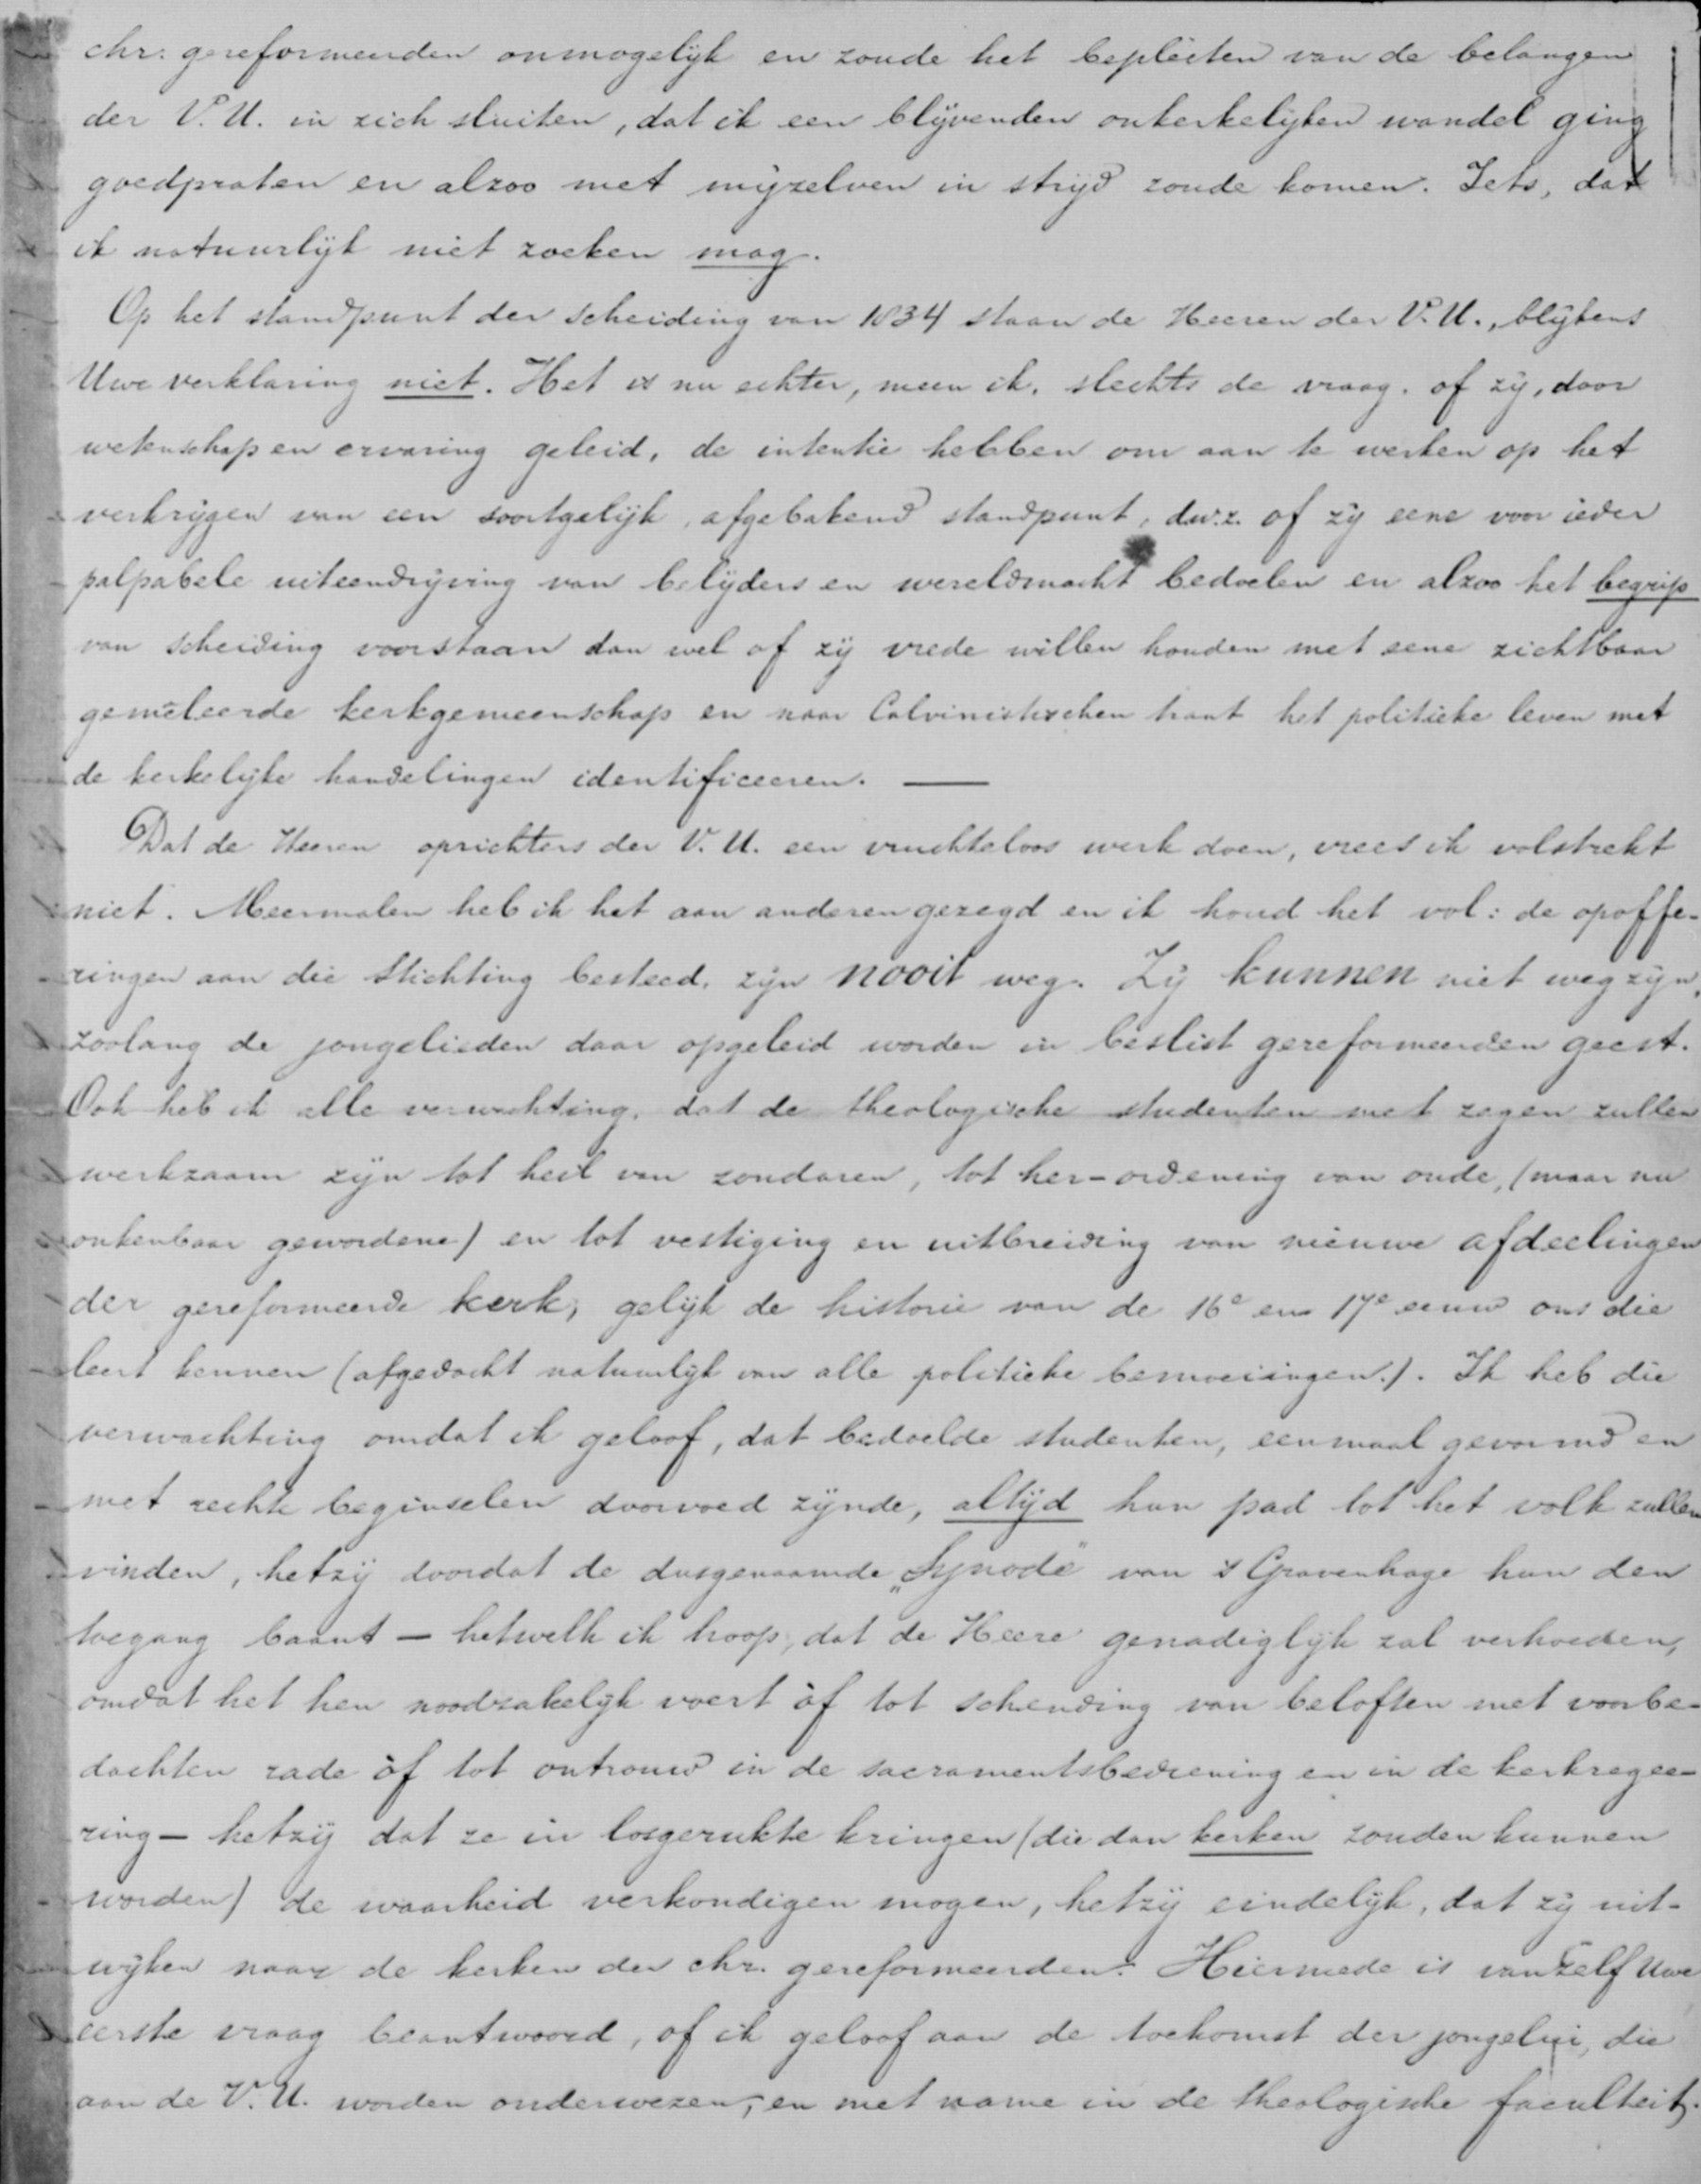 chr. gereformeerden onmogelijk en zoude het bepleiten van de belangen
der V. U. in zich sluiten, dat ik een blijvenden onkerkelijken wandel ging
goedpraten en alzoo met mijzelven in strijd zoude komen. Iets, dat
ik natuurlijk niet zoeken mag.
Op het standpunt der scheiding van 1834 staan de Heeren der V. U., blijkens
Uwe verklaring niet. Het is nu echter, meen ik, slechts de vraag, of zij, door
wetenschap en ervaring geleid, de intentie hebben om aan te werken op het
verkrijgen van een soortgelijk, afgebakend standpunt, d.w.z. of zij eene voor ieder
palpabele uiteendrijving van belijders en wereldmacht bedoelen en alzoo het begrip
van scheiding voorstaan dan wel of zij vrede willen houden met eene zichtbaar
gemêleerde kerkgemeenschap en naar Calvinistischen trant het politieke leven met
de kerkelijke handelingen identificeeren. —
Dat de Heeren oprichters der V. U. een vruchteloos werk doen, vrees ik volstrekt
niet. Meermalen heb ik het aan anderen gezegd en ik houd het vol: de opoffe-
ringen aan die Stichting besteed, zijn nooit weg. Zij kunnen niet weg zijn,
zoolang de jongelieden daar opgeleid worden in beslist gereformeerden geest.
Ook heb ik alle verwachting, dat de theologische studenten met zegen zullen
werkzaam zijn tot heil van zondaren, tot her-ordening van oude, (maar nu
onkenbaar gewordene) en tot vestiging en uitbreiding van nieuwe afdeelingen
der gereformeerde kerk, gelijk de historie van de 16e en 17e eeuw ons die
leert kennen (afgedacht natuurlijk van alle politieke bemoeiingen.). Ik heb die
verwachting omdat ik geloof, dat bedoelde studenten, eenmaal gevormd en
met rechte beginselen doorvoed zijnde, altijd hun pad tot het volk zullen
vinden, hetzij doordat de dusgenaamde „Synode" van 's Gravenhage hun den
toegang baant — hetwelk ik hoop, dat de Heere genadiglijk zal verhoeden,
omdat het hen noodzakelijk voert òf tot schending van beloften met voorbe-
dachten rade òf tot ontrouw in de sacramentsbediening en in de kerkregee-
ring — hetzij dat ze in losgerukte kringen (die dan kerken zouden kunnen
worden) de waarheid verkondigen mogen, hetzij eindelijk, dat zij uit-
wijken naar de kerken der chr. gereformeerden. Hiermede is vanzelf Uwe
eerste vraag beantwoord, of ik geloof aan de toekomst der jongelui, die
aan de V. U. worden onderwezen, en met name in de theologische faculteit.